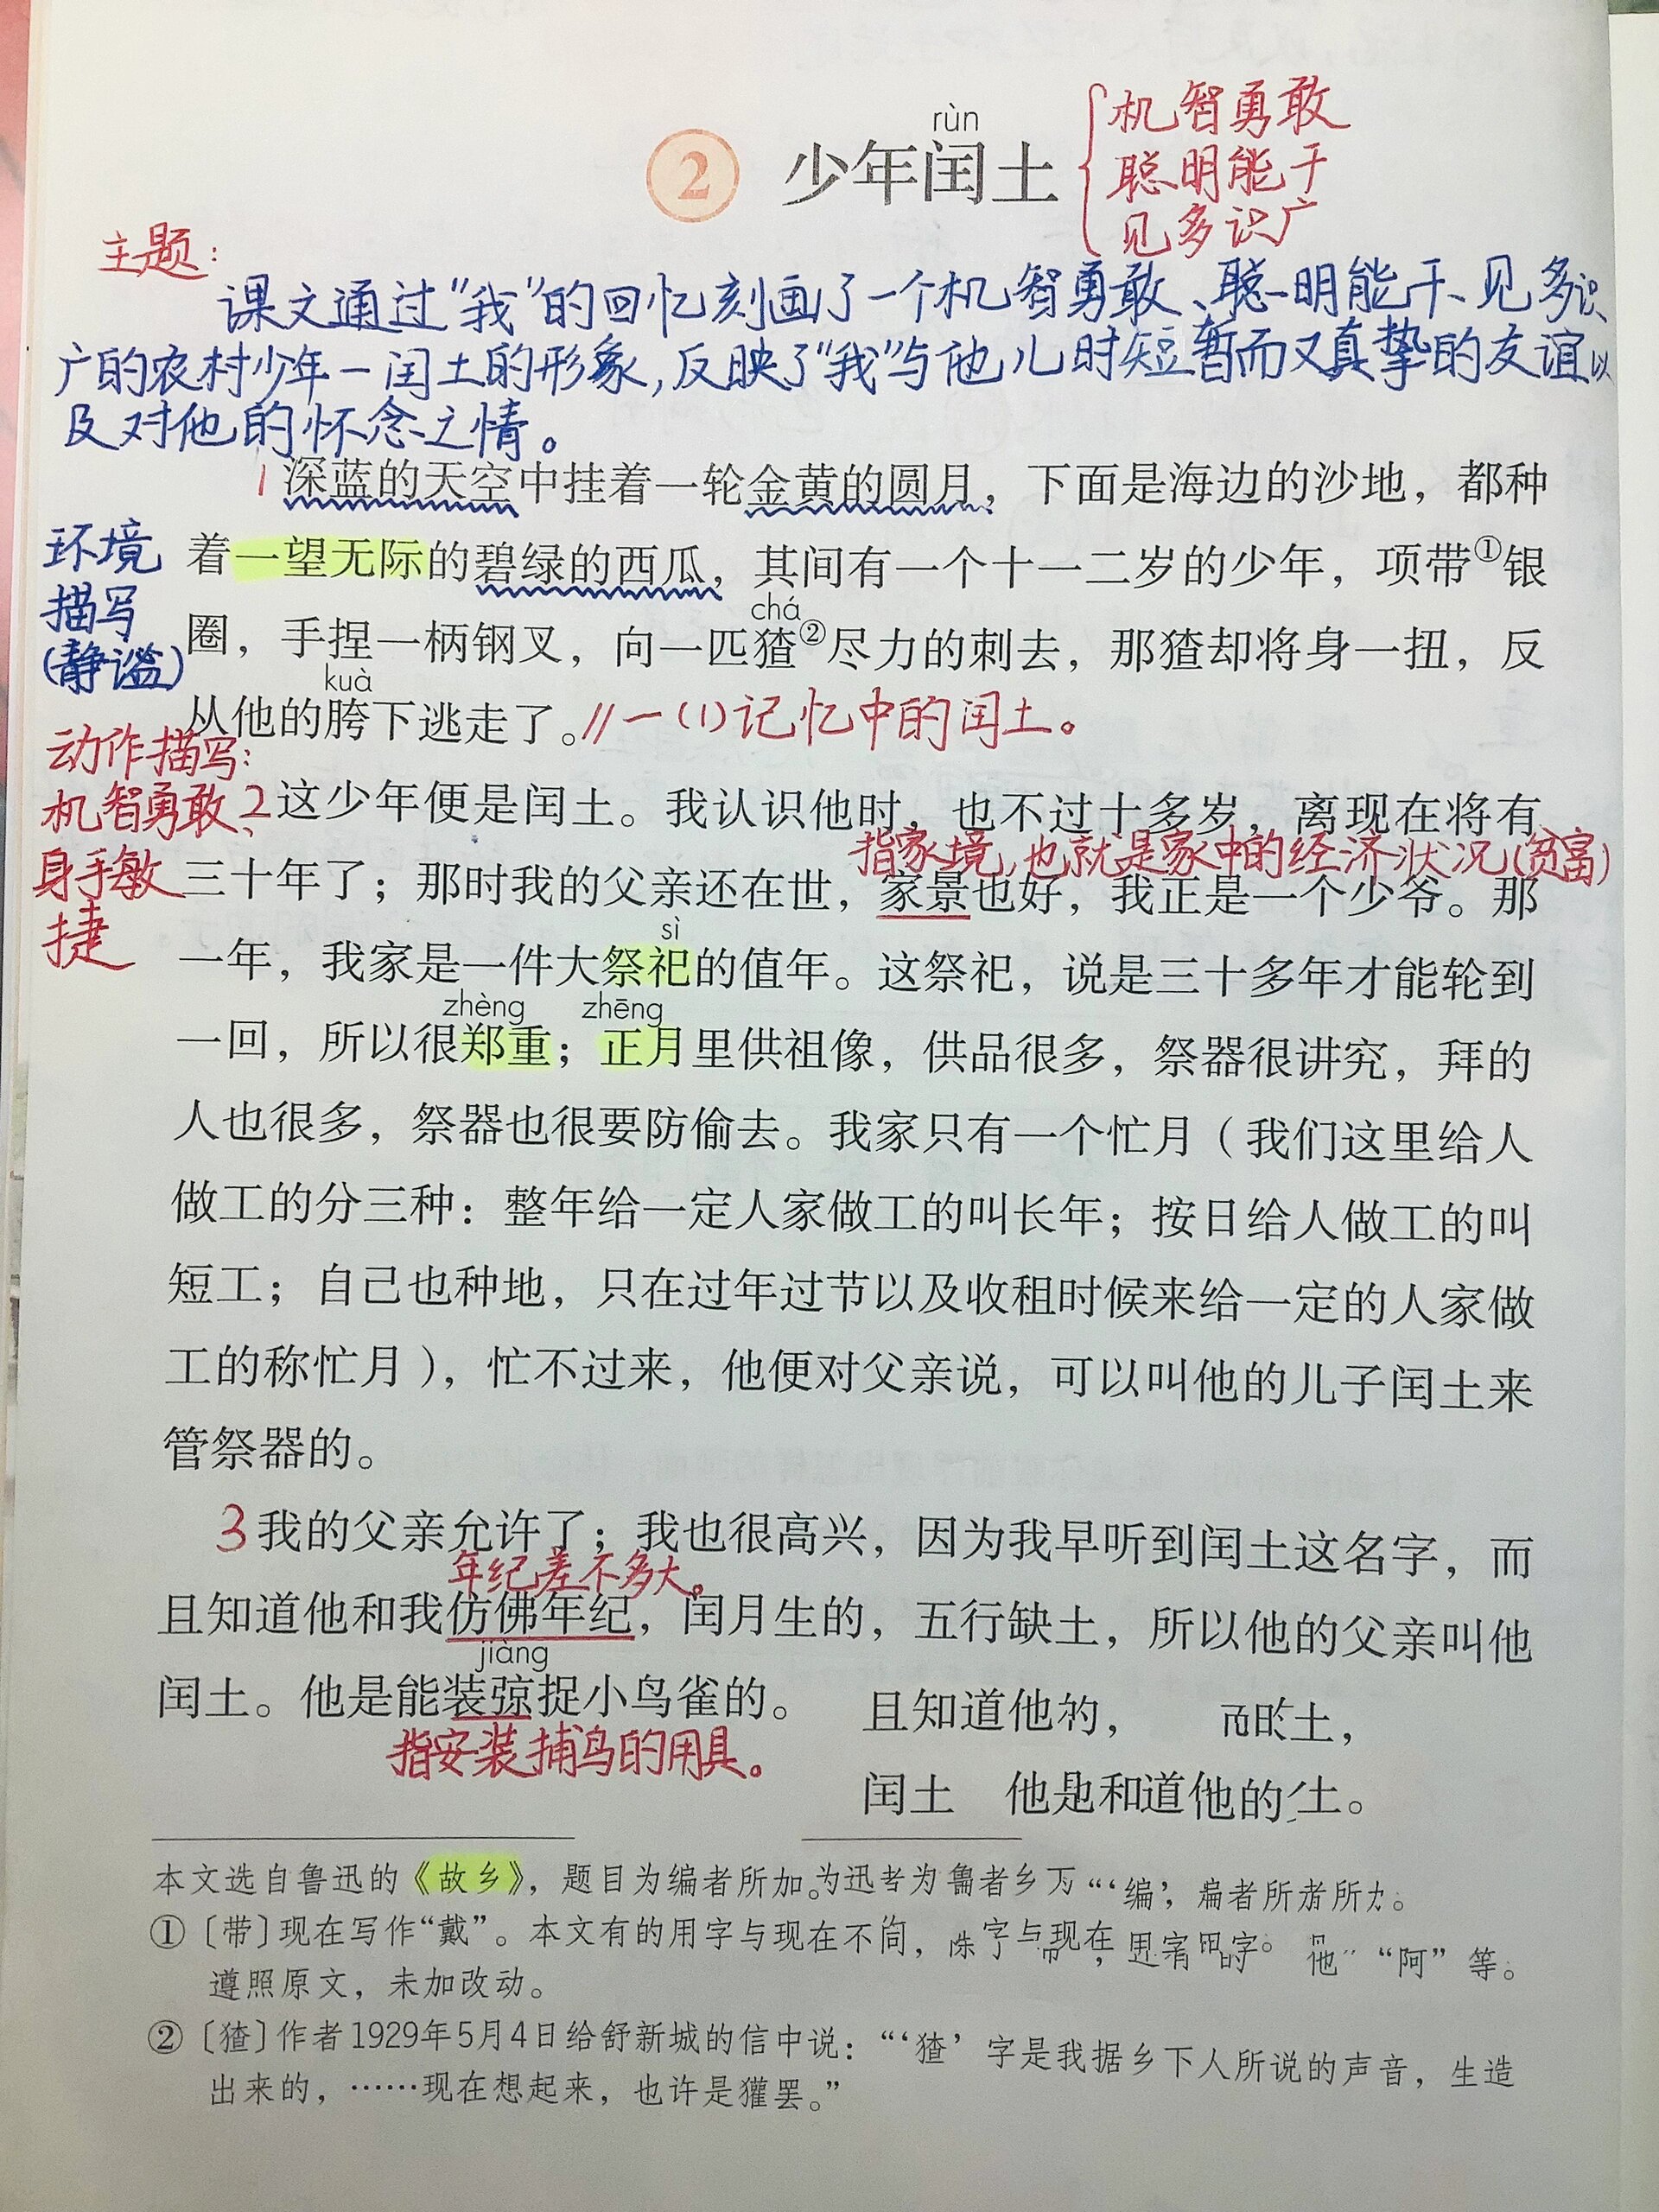 rùn
② 少年闰土
机智勇敢
聪明能干
见多识广
主题：
课文通过“我”的回忆刻画了一个机智勇敢、聪明能干、见多识
广的农村少年—闰土的形象,反映了“我”与他儿时短暂而又真挚的友谊以
及对他的怀念之情。
1深蓝的天空中挂着一轮金黄的圆月，下面是海边的沙地，都种
着一望无际的碧绿的西瓜，其间有一个十一二岁的少年，项带①银
chá
圈，手捏一柄钢叉，向一匹猹②尽力的刺去，那猹却将身一扭，反
kuà
从他的胯下逃走了。∥一(1)记忆中的闰土。
环境
描写
(静谧)
动作描写：
机智勇敢、
身手敏
捷
2这少年便是闰土。我认识他时，也不过十多岁，离现在将有
指家境,也就是家中的经济状况(贫富)
三十年了；那时我的父亲还在世，家景也好，我正是一个少爷。那
sì
一年，我家是一件大祭祀的值年。这祭祀，说是三十多年才能轮到
zhèng zhēng
一回，所以很郑重；正月里供祖像，供品很多，祭器很讲究，拜的
人也很多，祭器也很要防偷去。我家只有一个忙月（我们这里给人
做工的分三种：整年给一定人家做工的叫长年；按日给人做工的叫
短工；自己也种地，只在过年过节以及收租时候来给一定的人家做
工的称忙月），忙不过来，他便对父亲说，可以叫他的儿子闰土来
管祭器的。
3我的父亲允许了；我也很高兴，因为我早听到闰土这名字，而
年纪差不多大。
且知道他和我仿佛年纪，闰月生的，五行缺土，所以他的父亲叫他
jiàng
闰土。他是能装弶捉小鸟雀的。
指安装捕鸟的用具。
且知道他的，
土，
闰土 他是和道他的 土。
本文选自鲁迅的《故乡》，题目为编者所加。
①〔带〕现在写作“戴”。本文有的用字与现在不同，
字与现在 “阿”等。
遵照原文，未加改动。
②〔猹〕作者1929年5月4日给舒新城的信中说：“‘猹’字是我据乡下人所说的声音，生造
出来的，……现在想起来，也许是獾罢。”